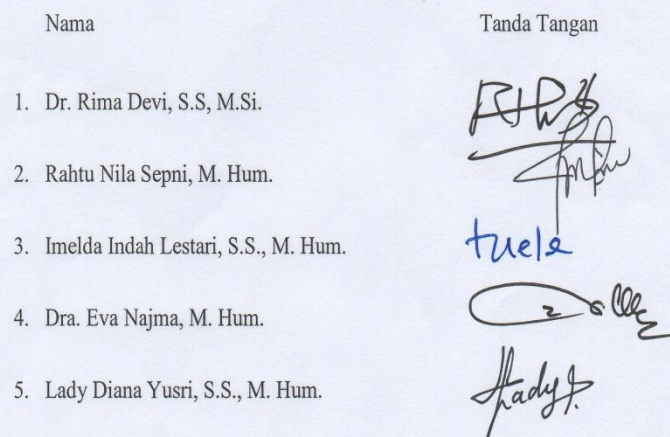 Nama Tanda Tangan
1. Dr. Rima Devi, S.S, M.Si.
2. Rahtu Nila Sepni, M. Hum.
3. Imelda Indah Lestari, S.S., M. Hum.
4. Dra. Eva Najma, M. Hum.
5. Lady Diana Yusri, S.S., M. Hum.